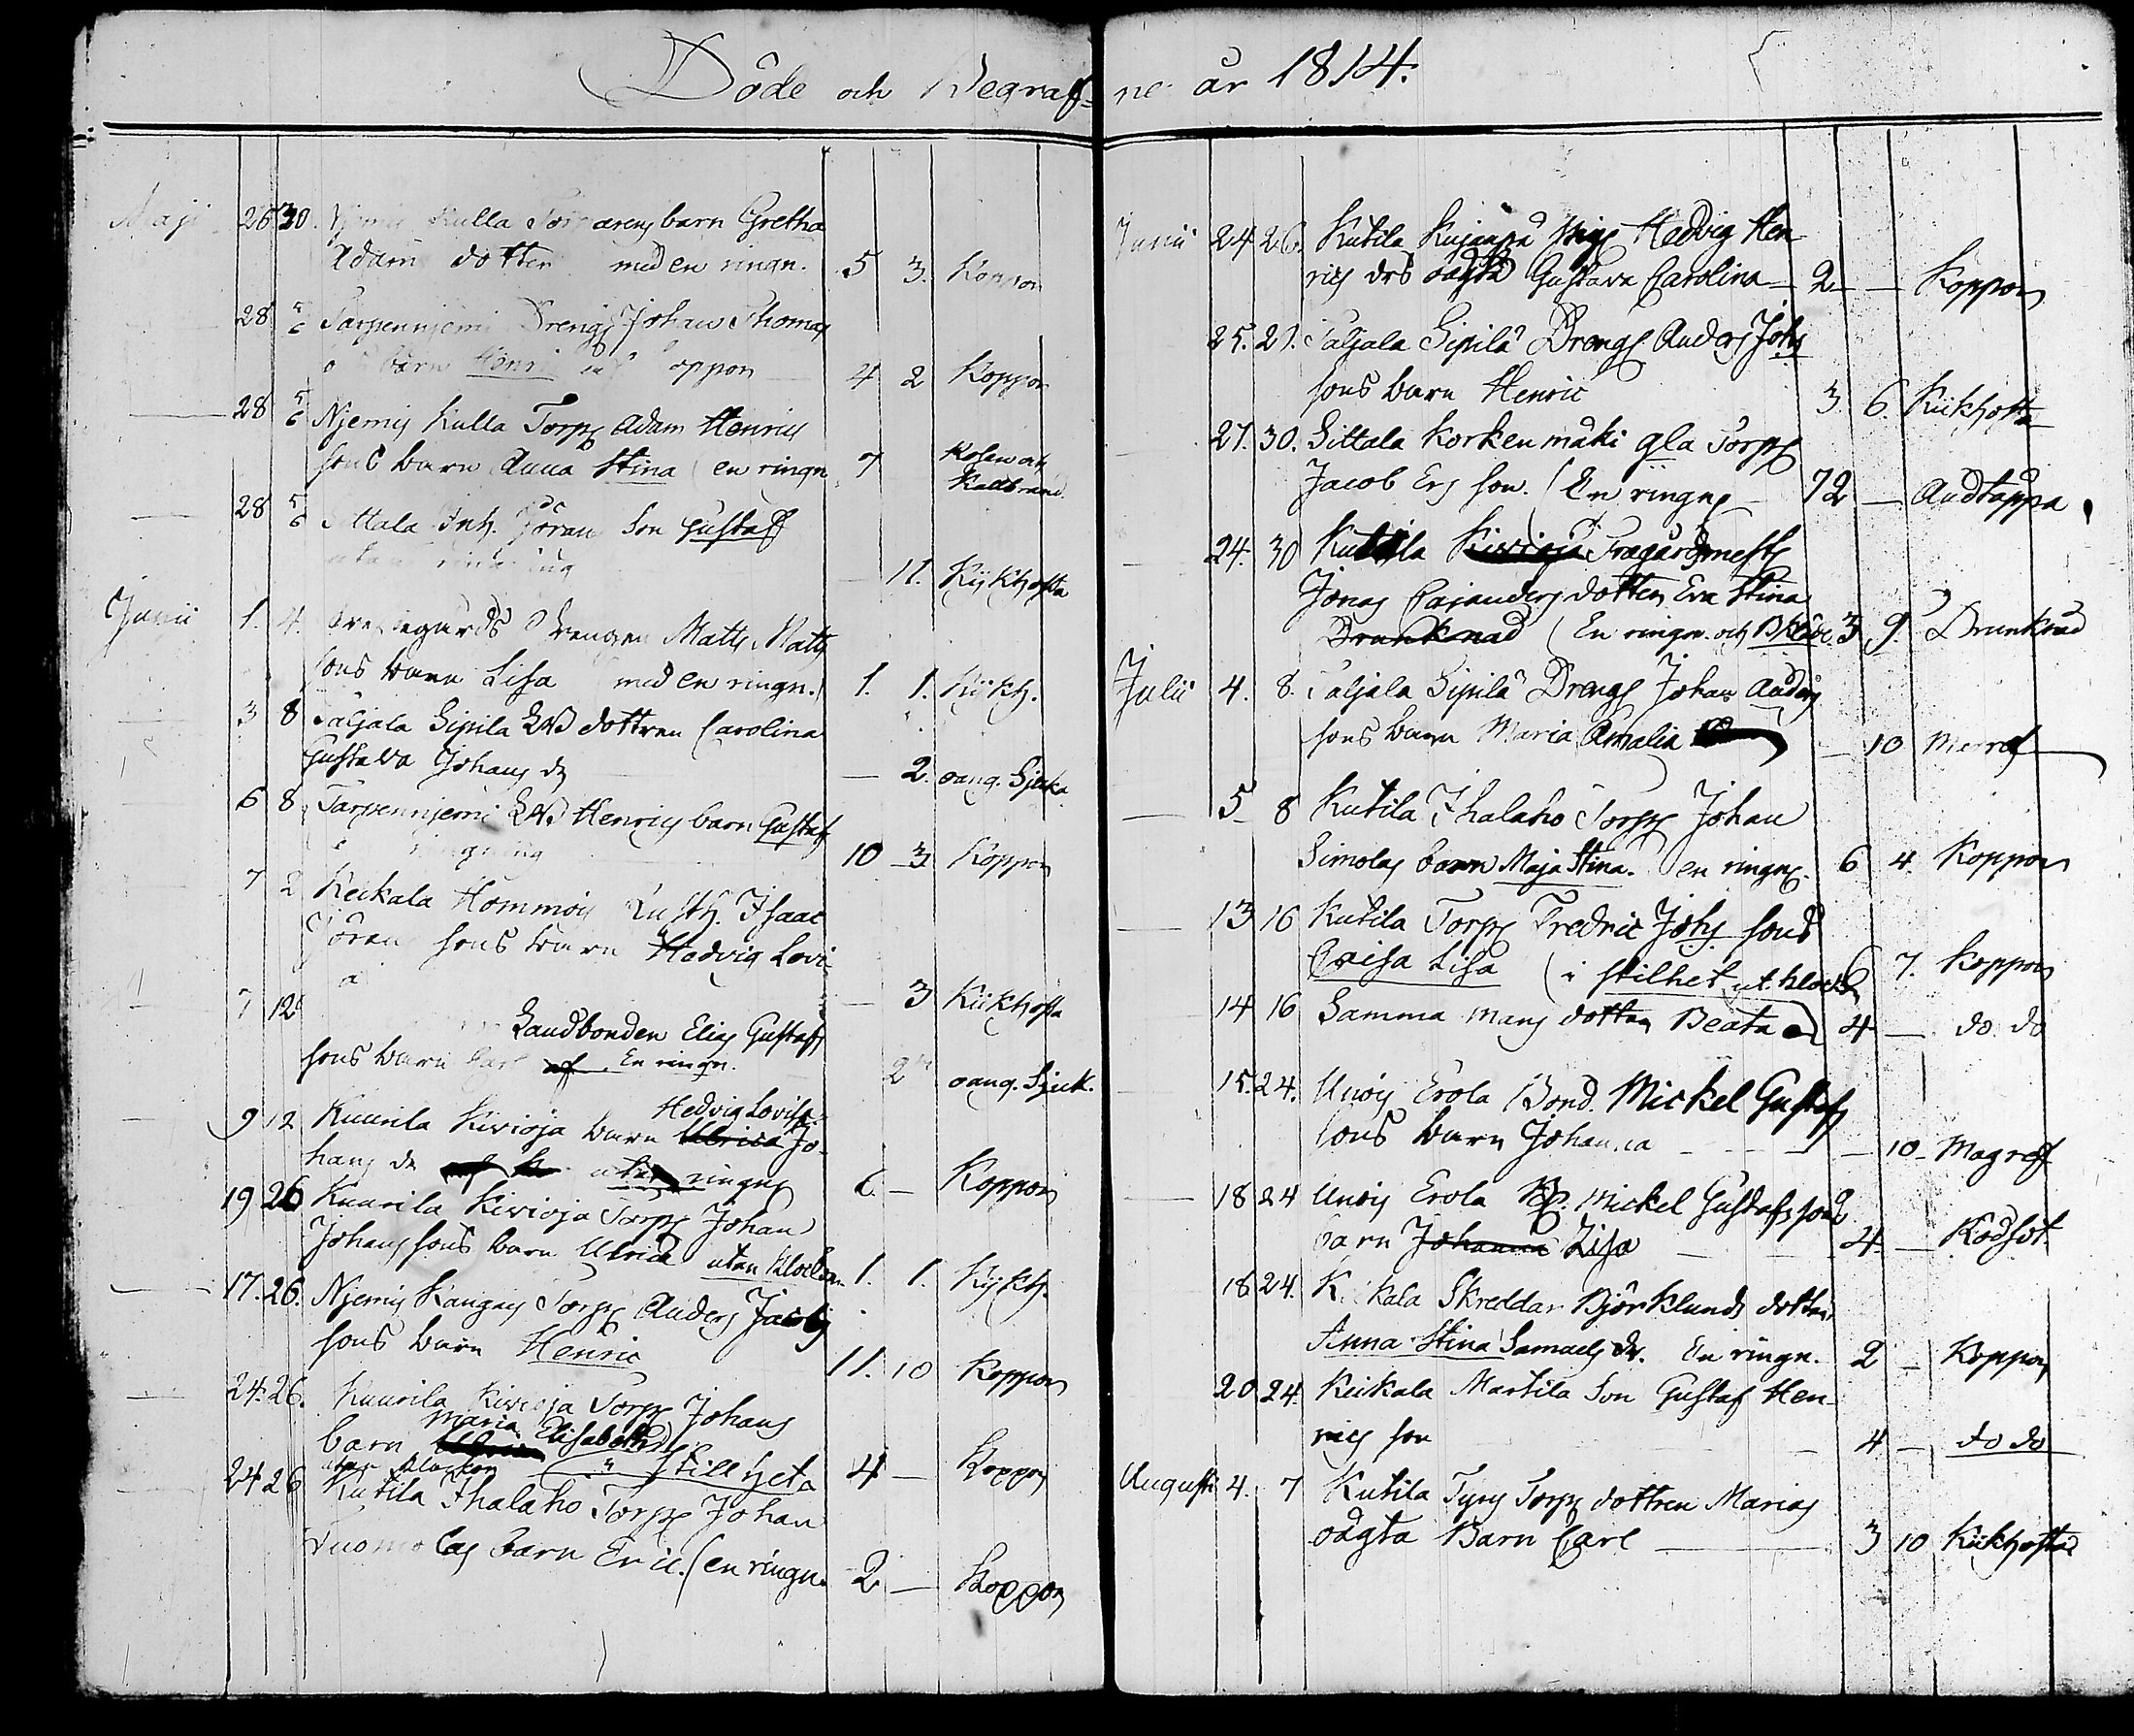 Döde och Begrafne år 1814.
Maji 26 30. Njemis Kulla Torparens barn Gretha
Adams dotter med en ringn. 5 3. Koppor
28 5/6 Tarpennjemi Drengs Johan Thomas
barn Henric Koppor 4 2 Koppor
28 5/6 Njemis Kulla Torps Adam Henrics
sons barn Anna Stina (en ringn. 7 Rosen och Kallbrand.
28 5/6 Sittala Inh. Jörans Son Gustaf
utan ringning 11. Kijkhosta
Junii 1. 4. Drengen Matts Matts
sons barn Lisa med en ringn. 1. 1. Kijkh.
3 8 Taljala Sipila LB dottren Carolina
Gustava Johans dr — 2. oang. Sjuka
6 8 Tarpennjemi LB Henrics barn Gustaf
ringning 10 3 Koppor
7 2 Keikala Hommois Lusth. Isaac
Jörans sons barn Hedvig Lovi
a — 3 Kiikhosta
7 12 Landbonden Elias Gustafs
sons barn Carl En ringn. 2 oang. Sjuk.
9 12 Kuurila Kivioja barn Ulrica Hedvig Lovisa Jo-
hans dr utan ringng 6 — Koppor
19 26 Kuurila Kivioja Torps Johan
Johans sons barn Ulrica utan klockor 1. 1. Kijkh.
17. 26. Njemis Kangas Torps Anders Jacobs
sons barn Henric 11. 10 Koppor
24. 26. Kuurila Kivioja Torps Johans
barn Maria Elisabeth
utan klockor i stillhet 4 — Koppor
24 26 Kutila Ihalaho Torps Johan
Tuomolas barn Eric. (en ringn. 2 — Koppor
Junii 24 26. Kutila Kujanpä Pigs Hedvig Hen
rics drs oägta Gustava Carolina — 2 — Koppor
25. 27. Taljala Sipilä Drengs Anders Johs
sons barn Henric 3. 6. Kiikhosta
27. 30. Sittala Korkenmäki gla Torps
Jacob Ers son. (En ringng 72 — Andtäppa
24. 30 Kutila Kivioja Trägårdsmest.
Jonas Cajanders dotter Eva Stina
Drunknad (En ringn. och 3 9. Drunknad
Julii 4. 8. Taljala Sipilä Drengs Johan Anders
sons barn Maria Amalia — 10
— 5 8 Kutila Ihalaho Torps Johan
Simolas barn Maja Stina. en ringng. 6 4. Koppor
— 13 16 Kutila Torps Fredric Johs sons
Caisa Lisa (i stillhet ut klock 6 7. Koppor
14 16 Samma mans dotter Beata 4 — do. do
15. 24. Unois Erola Bond. Mickel Gustafs
sons barn Johanna — 10 — Magref
— 18 24 Unois Erola Mickel Gustafs sons
barn Johanna Lisa 4 — Rödsot
18 24. Keikala Skreddar Björklunds dotter
Anna Stina Samuels dr. En ringn. 2 — Koppor
20 24. Keikala Martila Son Gustaf Hen-
rics son 4 — do do
Augusti 4. 7 Kutila Tyrys Torps dottren Marias
oägta Barn Carl 3 10 Kiikhosta